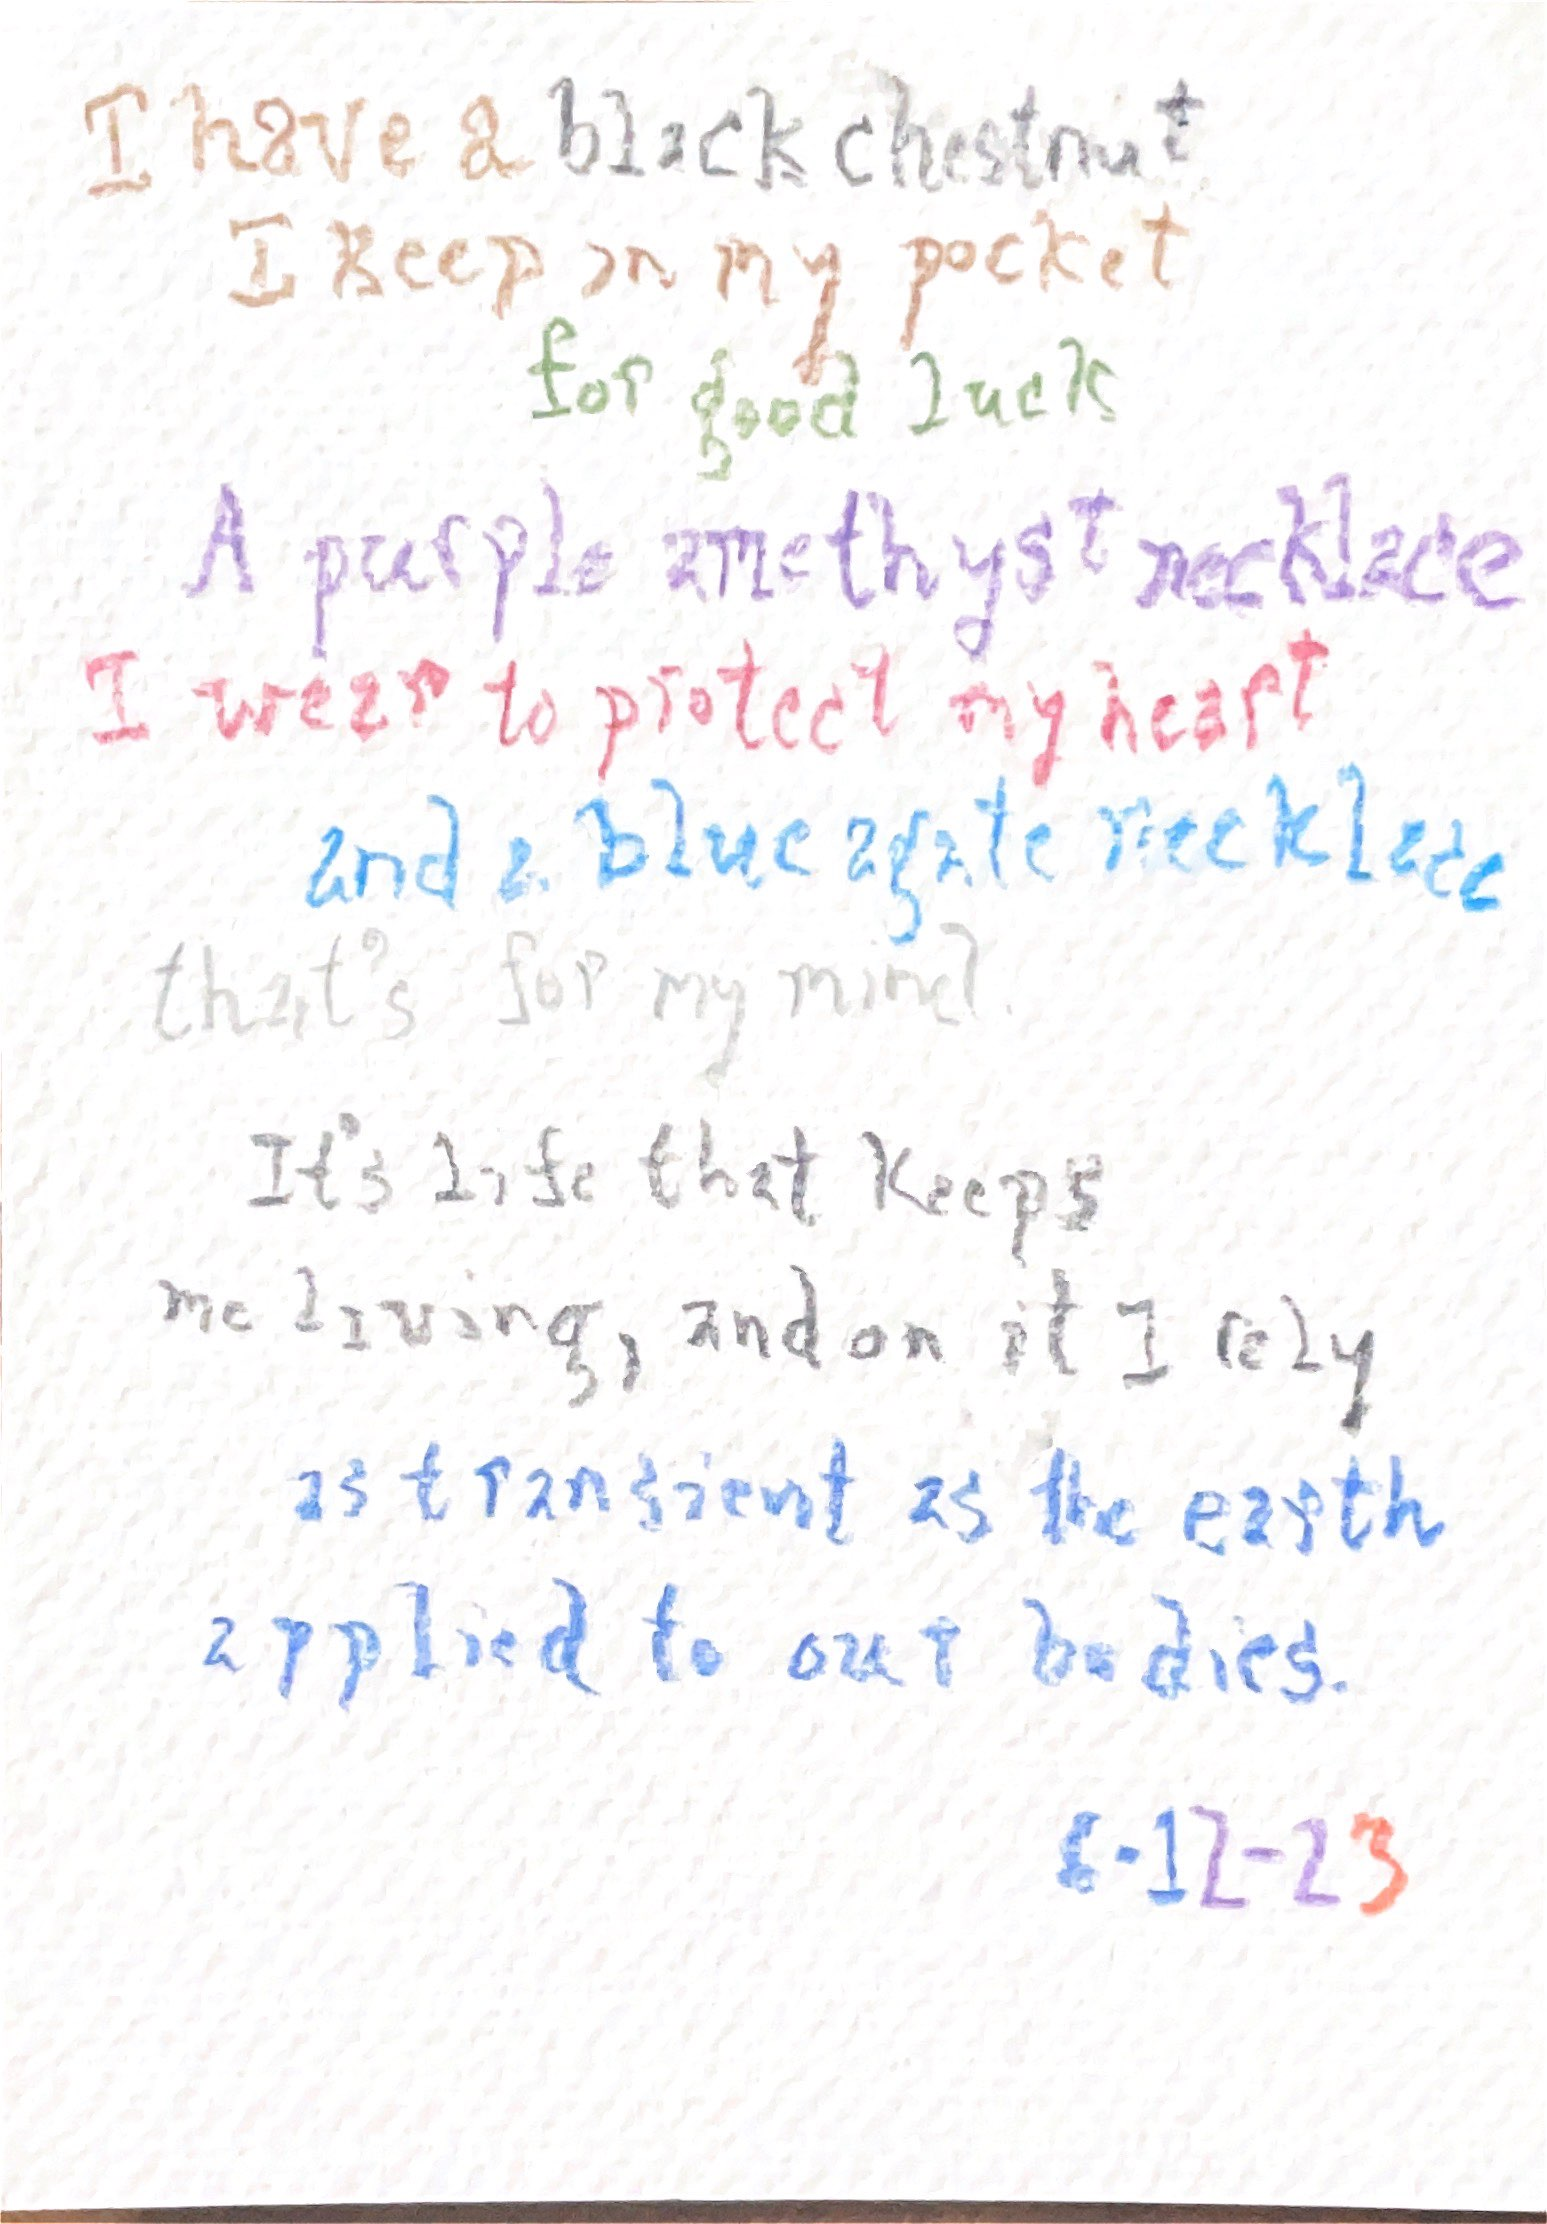 I have a black chestnut
I keep in my pocket
for good luck
A purple amethyst necklace
I wear to protect my heart
and a blue agate necklace
that's for my mind.
It's life that keeps
me living, and on it I rely
as transient as the earth
applied to our bodies.
6-12-23